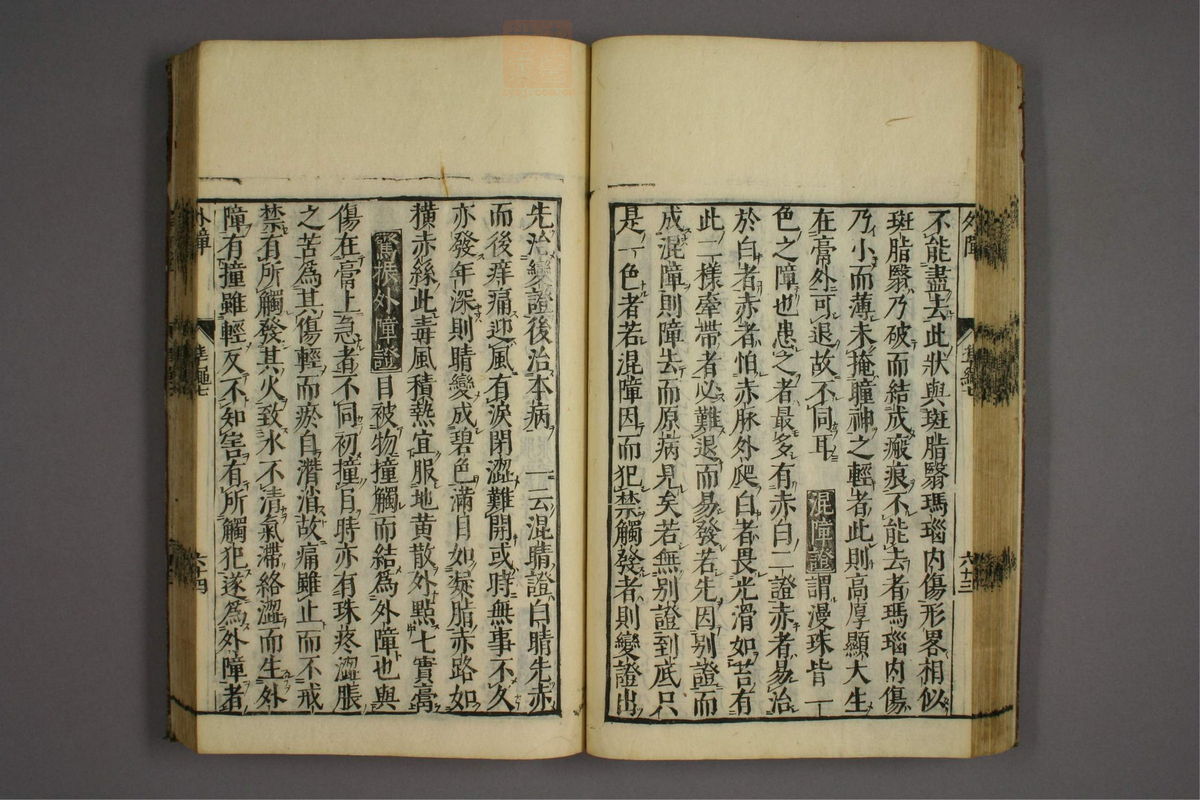 不能盡去此狀與斑脂翳瑪瑙內傷形畧相似
斑脂翳乃破而結成瘢痕不能去者瑪瑙內傷
乃小而薄未掩瞳神之輕者此則高厚顯大生
在膏外可退故不同耳 混障證 謂漫珠皆一
色之障也患之者最多有赤白二證赤者易治
於白者赤者怕赤脉外爬白者畏光滑如苔有
此二樣牽帶者必難退而易發若先因别證而
成混障則障去而原病見矣若無别證到底只
是一色者若混障因而犯禁觸發者則變證出
先治變證後治本病 一云混睛證白睛先赤
而後痒痛迎風有淚閉澀難開或時無事不久
亦發年深則睛變成碧色滿目如凝脂赤路如
橫赤絲此毒風積熱宜服地黃散外點七寶膏
驚振外障證 目被物撞觸而結為外障也與
傷在膏上急者不同初撞目時亦有珠疼澀脹
之苦為其傷輕而瘀自潛消故痛雖止而不戒
禁有所觸發其火致水不清氣滯絡澀而生外
障有撞雖輕反不知害有所觸犯遂為外障者
外障
六十三
外障
六十四